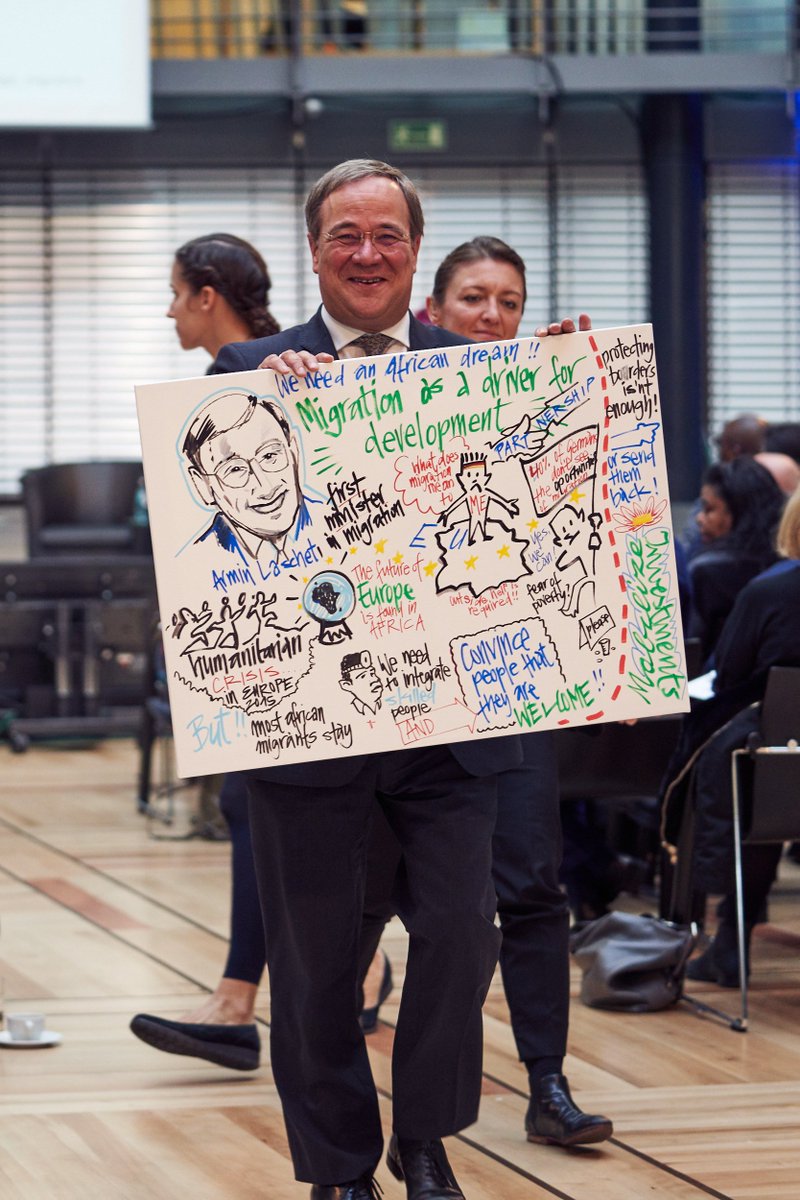 We need an African dream !!
Migration as a driver for
development
PARTNERSHIP
protecting
boarders
isn't
enough!
or send
them
back!
Maximize
Investments
What does
migration
mean to
ME
40% of Germans
don't see
the opportunities
first
minister
in migration
Armin Laschet
E U
yes
we
can
fear of
poverty!
please
The future of
Europe
is found in
AFRICA
is required!!
humanitarian
CRISIS
in EUROPE
2015
But!!
most african
migrants stay
We need
to integrate
skilled
people
AND
Convince
people that
they are
WELCOME !!